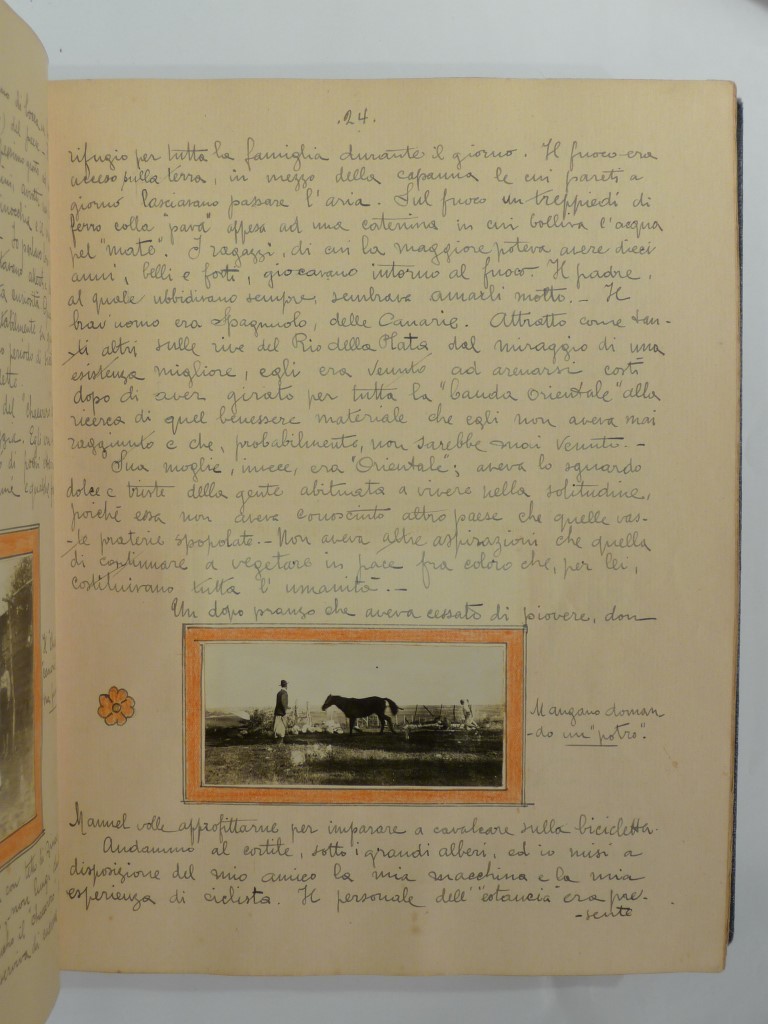 .24.
rifugio per tutta la famiglia durante il giorno. Il fuoco era
acceso sulla terra, in mezzo della capanna le cui pareti a
giorno lasciavano passare l'aria. Sul fuoco un treppiedi di
ferro colla "pava" appesa ad una catenina in cui bolliva l'acqua
pel "mate". I ragazzi, di cui la maggiore poteva avere dieci
anni, belli e forti, giocavano intorno al fuoco. Il padre,
al quale ubbidivano sempre, sembrava amarli molto. - Il
brav'uomo era Spagnuolo, delle Canarie. Attratto come tan-
-ti altri sulle rive del Rio della Plata dal miraggio di una
esistenza migliore, egli era venuto ad arenarsi costì
dopo di aver girato per tutta la "banda Orientale" alla
ricerca di quel benessere materiale che egli non aveva mai
raggiunto e che, probabilmente, non sarebbe mai venuto. -
Sua moglie, invece, era "Orientale"; aveva lo sguardo
dolce e triste della gente abituata a vivere nella solitudine,
poiché essa non aveva conosciuto altro paese che quelle vas-
-te praterie spopolate. - Non aveva altre aspirazioni che quella
di continuare a vegetare in pace fra coloro che, per lei,
costituivano tutta l'umanità. -
Un dopo pranzo che aveva cessato di piovere, don
Mangano doman
-do un "potro".
Manuel volle approfittarne per imparare a cavalcare sulla bicicletta.
Andammo al cortile, sotto i grandi alberi, ed io misi a
disposizione del mio amico la mia macchina e la mia
esperienza di ciclista. Il personale dell'"estancia" era pre-
-sente